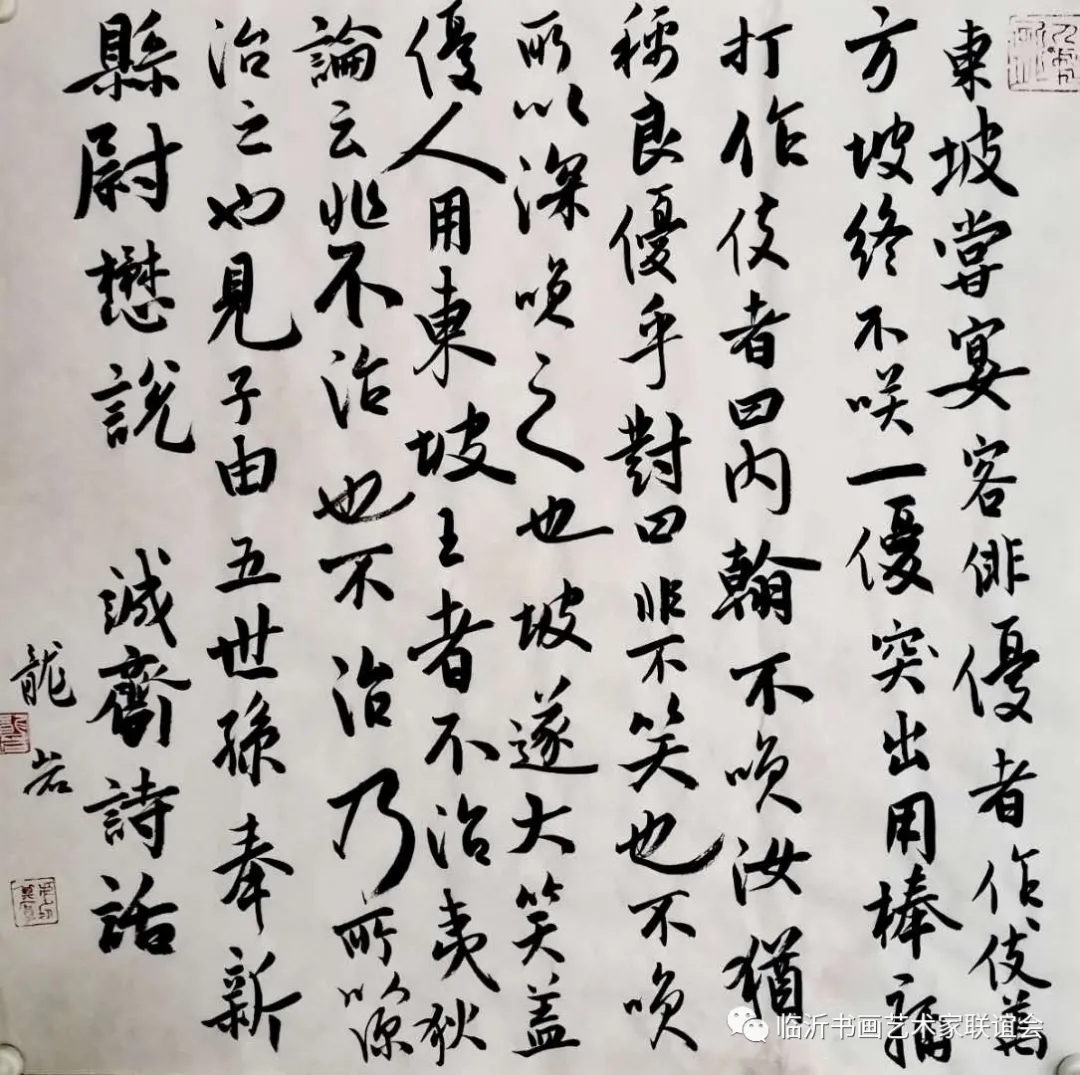 東坡嘗宴客俳優者作伎萬
方坡終不咲一優突出用棒痛
打作伎者曰内翰不咲汝猶
稱良優乎對曰非不笑也不咲
所以深咲之也坡遂大笑盖
優人用東坡王者不治夷狄
論云非不治也不治乃所以深
治之也見子由五世孫奉新
縣尉懋說 誠齋詩話
龍岩
临沂书画艺术家联谊会